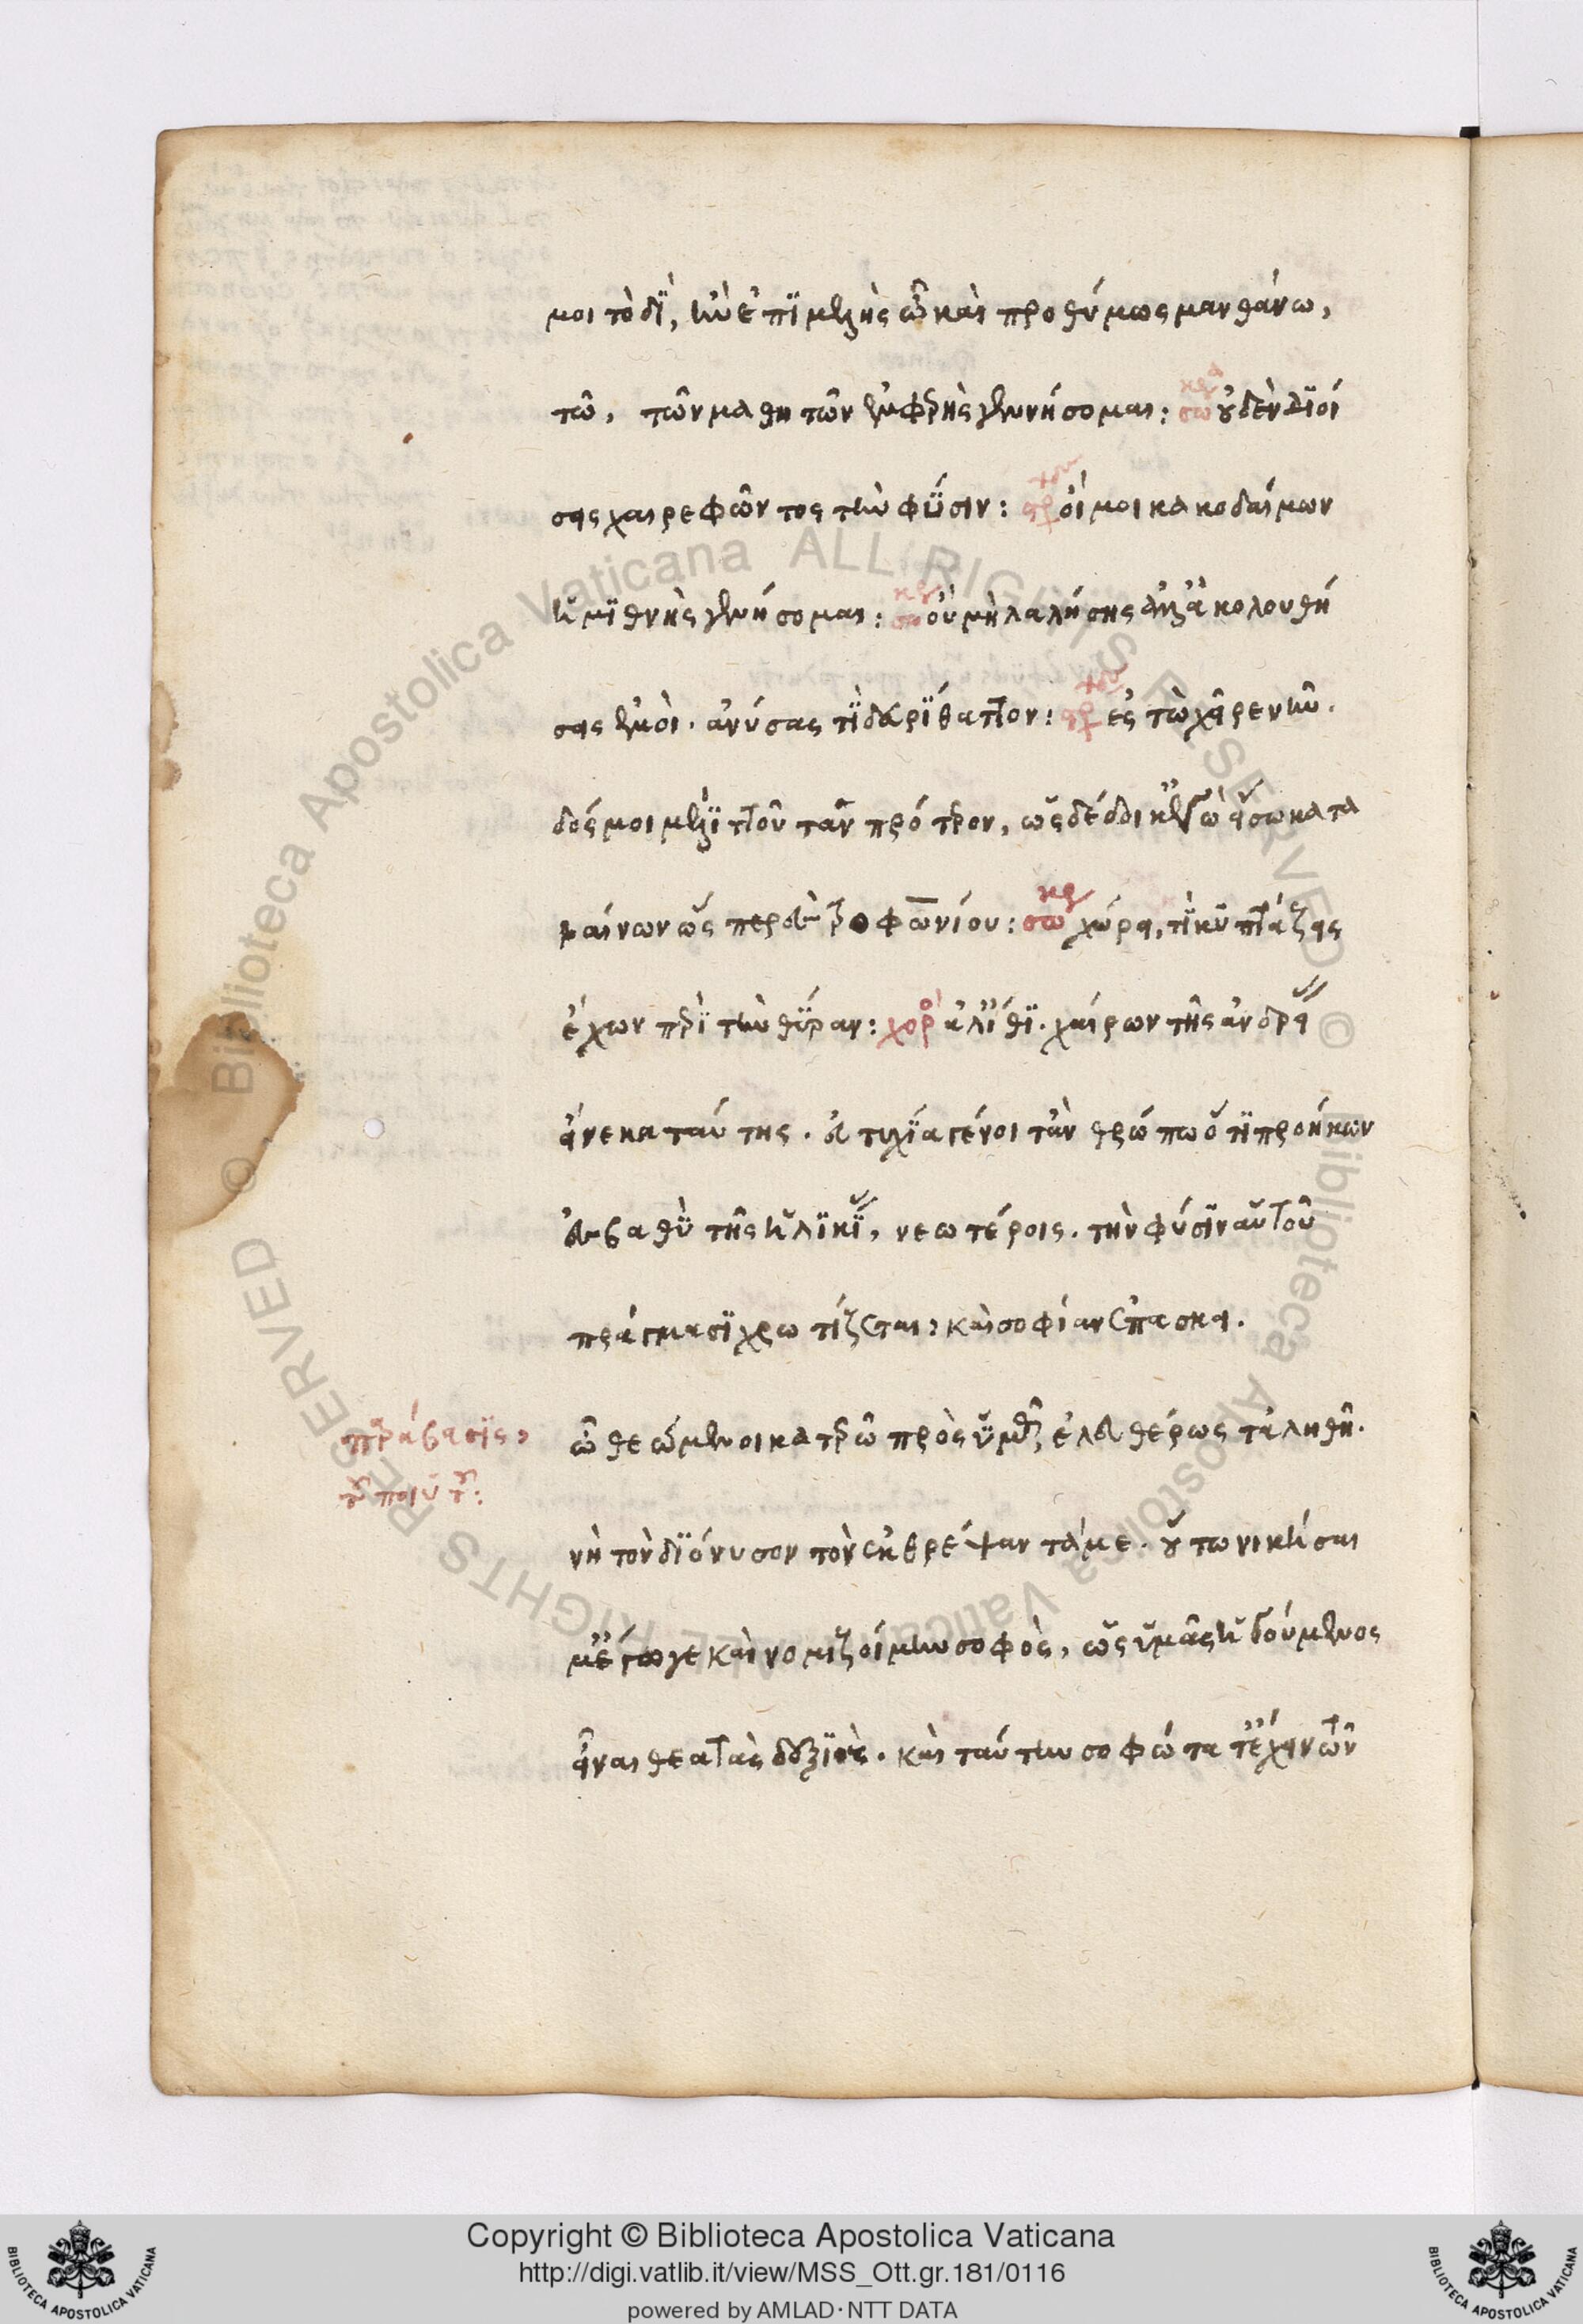 μοι τοδί, ἢν ἐπιμελὴς ὦ καὶ προθύμως μανθάνω,
τῶ, τῶν μαθητῶν ἐμφερὴς γενήσομαι: σωκρ οὐδὲν διοί
σεις χαιρεφῶντος τὴν φύσιν: στρ οἴμοι κακοδαίμων
ἡμιθνὴς γενήσομαι: σωκρ οὐ μὴ λαλήσης ἀλλ' ἀκολουθή
σεις ἐμοὶ. ἀνύσας τι δευρὶ θᾶττον: στρ ἐς τὼ χεῖρε νῦν.
δός μοι μελιττοῦταν πρότερον, ὡς δέδοικ' ἐγὼ εἴσω κατα
βαίνων ὥσπερ εἰς τροφωνίου: σωκρ χώρει, τί κυπτάζεις
ἔχων περὶ τὴν θύραν: χορ ἀλλ' ἴθι. χαίρων τῆς ἀνδρείας
εἵνεκα ταύτης. εὐτυχία γένοιτ' ἀνθρώπω ὅτι προήκων
εἰς βαθὺ τῆς ἡλικίας, νεωτέροις. τὴν φύσιν αὑτοῦ
πράγμασι χρωτίζεται: καὶ σοφίαν ἐπασκεῖ.
παράβασις
τοῦ ποιητοῦ:
ὦ θεώμενοι κατερῶ πρὸς ὑμᾶς, ἐλευθέρως τἀληθῆ.
νὴ τὸν διόνυσον τὸν ἐκθρέψαντά με. οὕτω νικήσαι
μ' ἔγωγε καὶ νομιζοίμην σοφὸς, ὡς ὑμᾶς ἡγούμενος
εἶναι θεατὰς δεξιοὺς. καὶ ταύτην σοφώτατ' ἔχειν τῶν
Copyright © Biblioteca Apostolica Vaticana
http://digi.vatlib.it/view/MSS_Ott.gr.181/0116
powered by AMLAD·NTT DATA